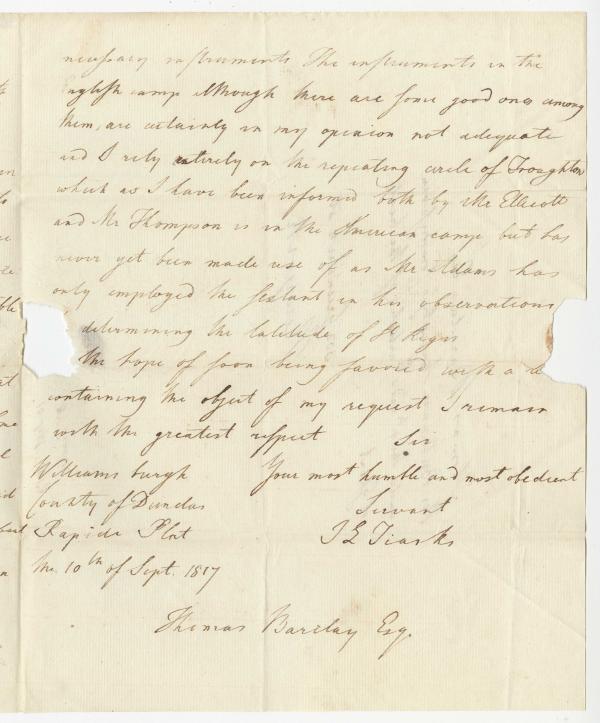 necessary instruments The instruments in the
nglish camp although there are some good ones among
them, are certainly in my opinion not adequate
and I rely entirely on the repeating circle of Troughton
which as I have been informed both by Mr Ellicott
and Mr Thompson is in the American camp but has
never yet been made use of as Mr Adams has
only employed the sextant in his observations
determining the latitude of St Regis
the hope of soon being favored with a
containing the object of my request I remain
with the greatest respect Sir
Your most humble and most obedient
Servant
J L Tiarks
Williamsburgh
County of Dundas
Rapide Plat
the 10th of Sept. 1817
Thomas Barclay Esq.